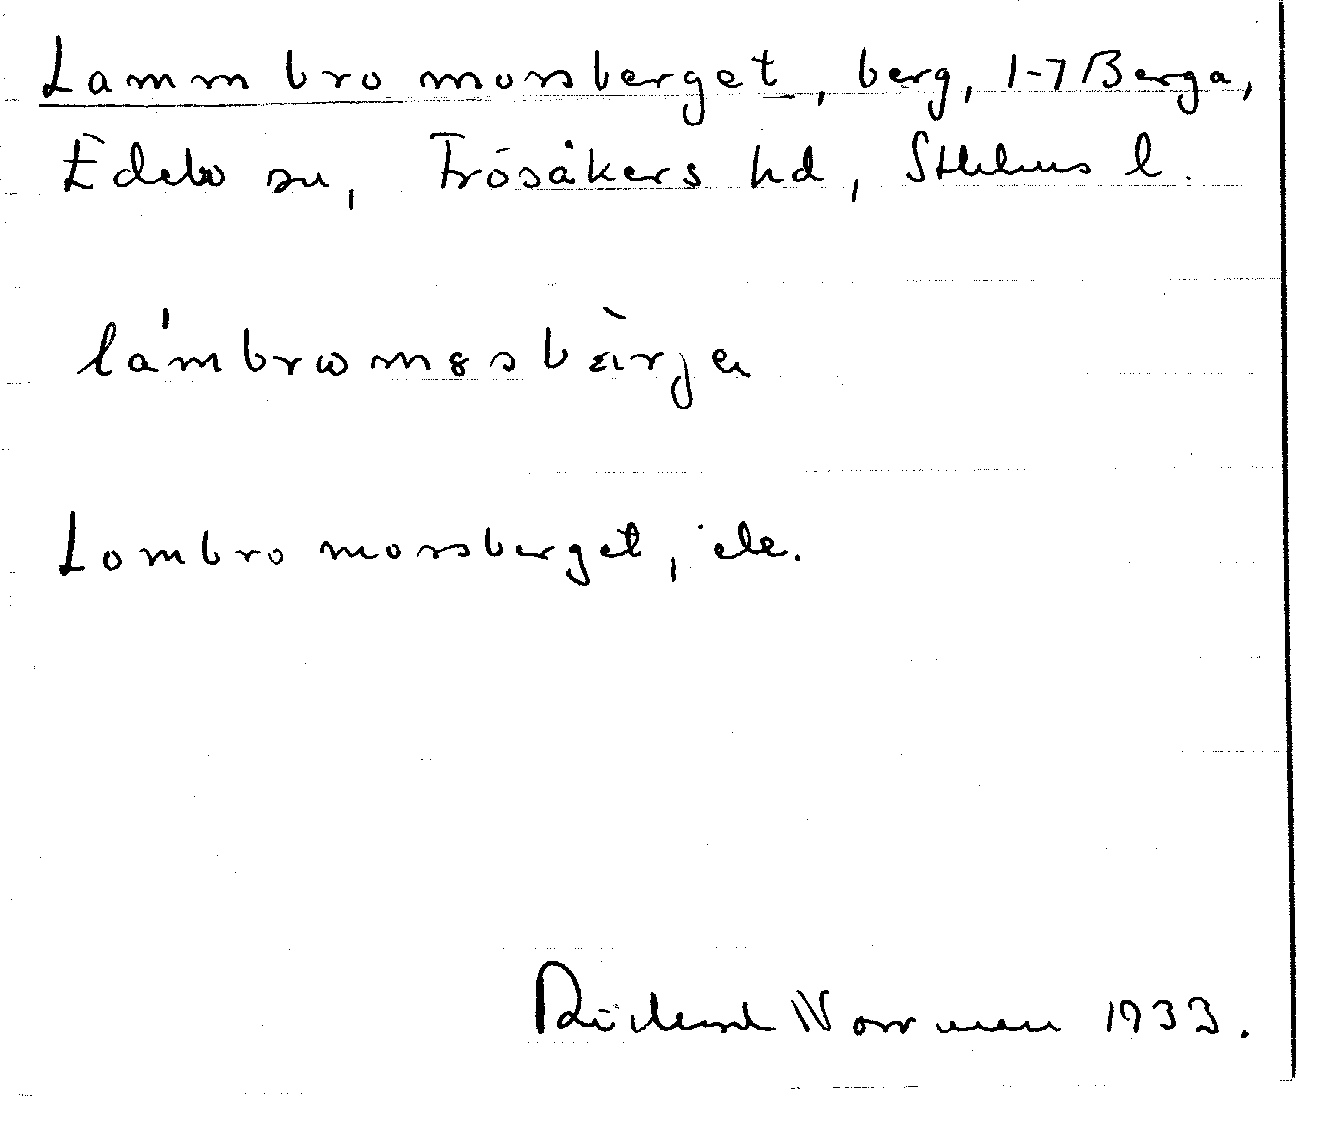 Lammbromorsberget, berg, 1-7 Berga,
Edebo sn, Frösåkers hd, Sthlms l.
lámbrωmɞsbärjɐ
Lombromorsberget, ek.
Rickard Norrman 1933.